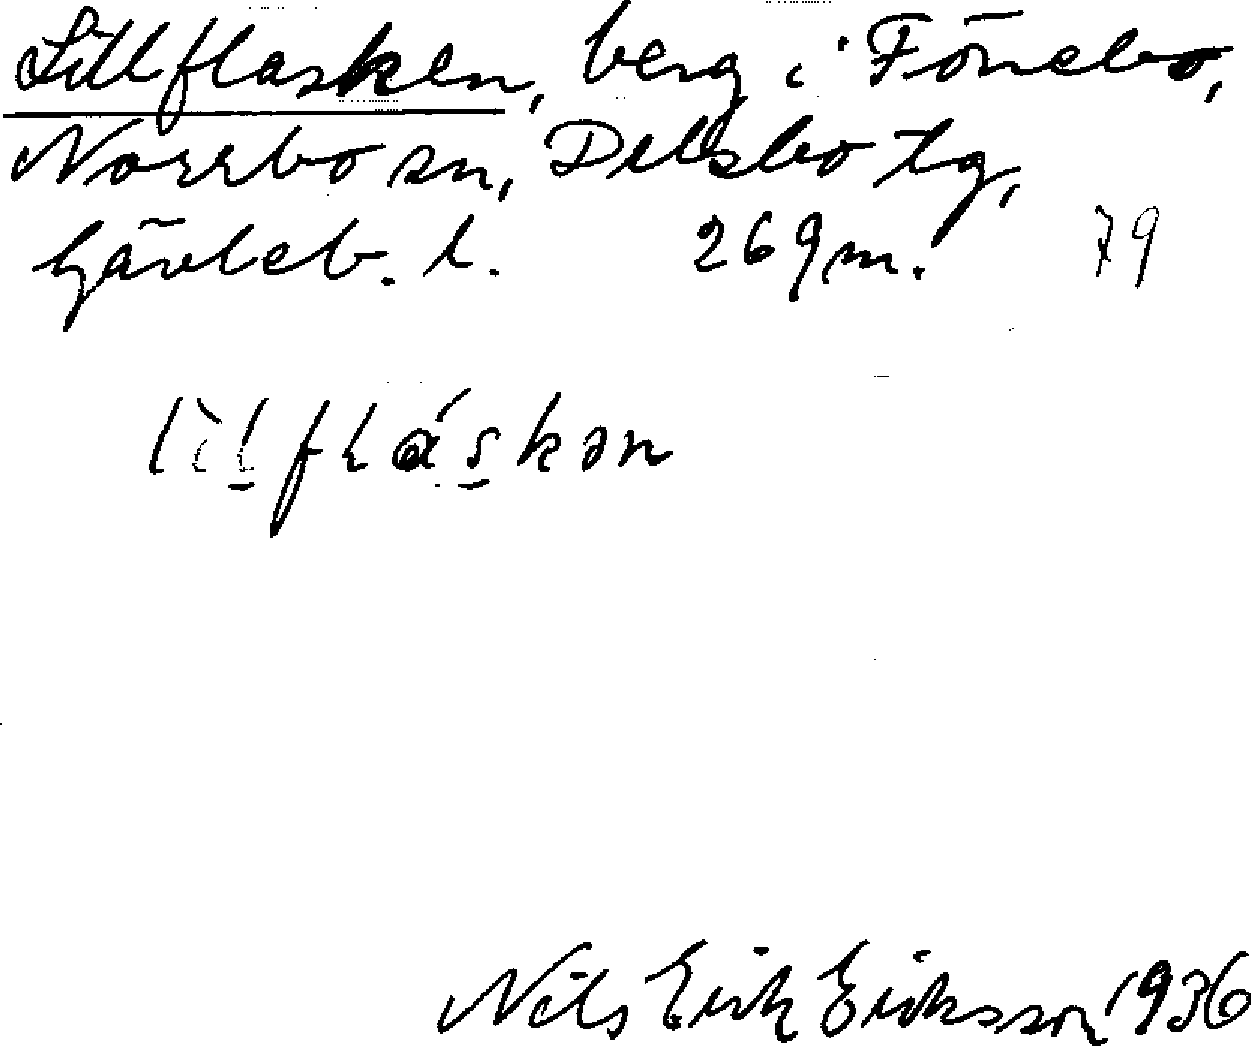 Lillflasken, berg i Fönebo,
Norrbo sn, Delsbo tg,
Gävleb. l. 269 m. 79
lìlfláskən
Nils Erik Eriksson 1936